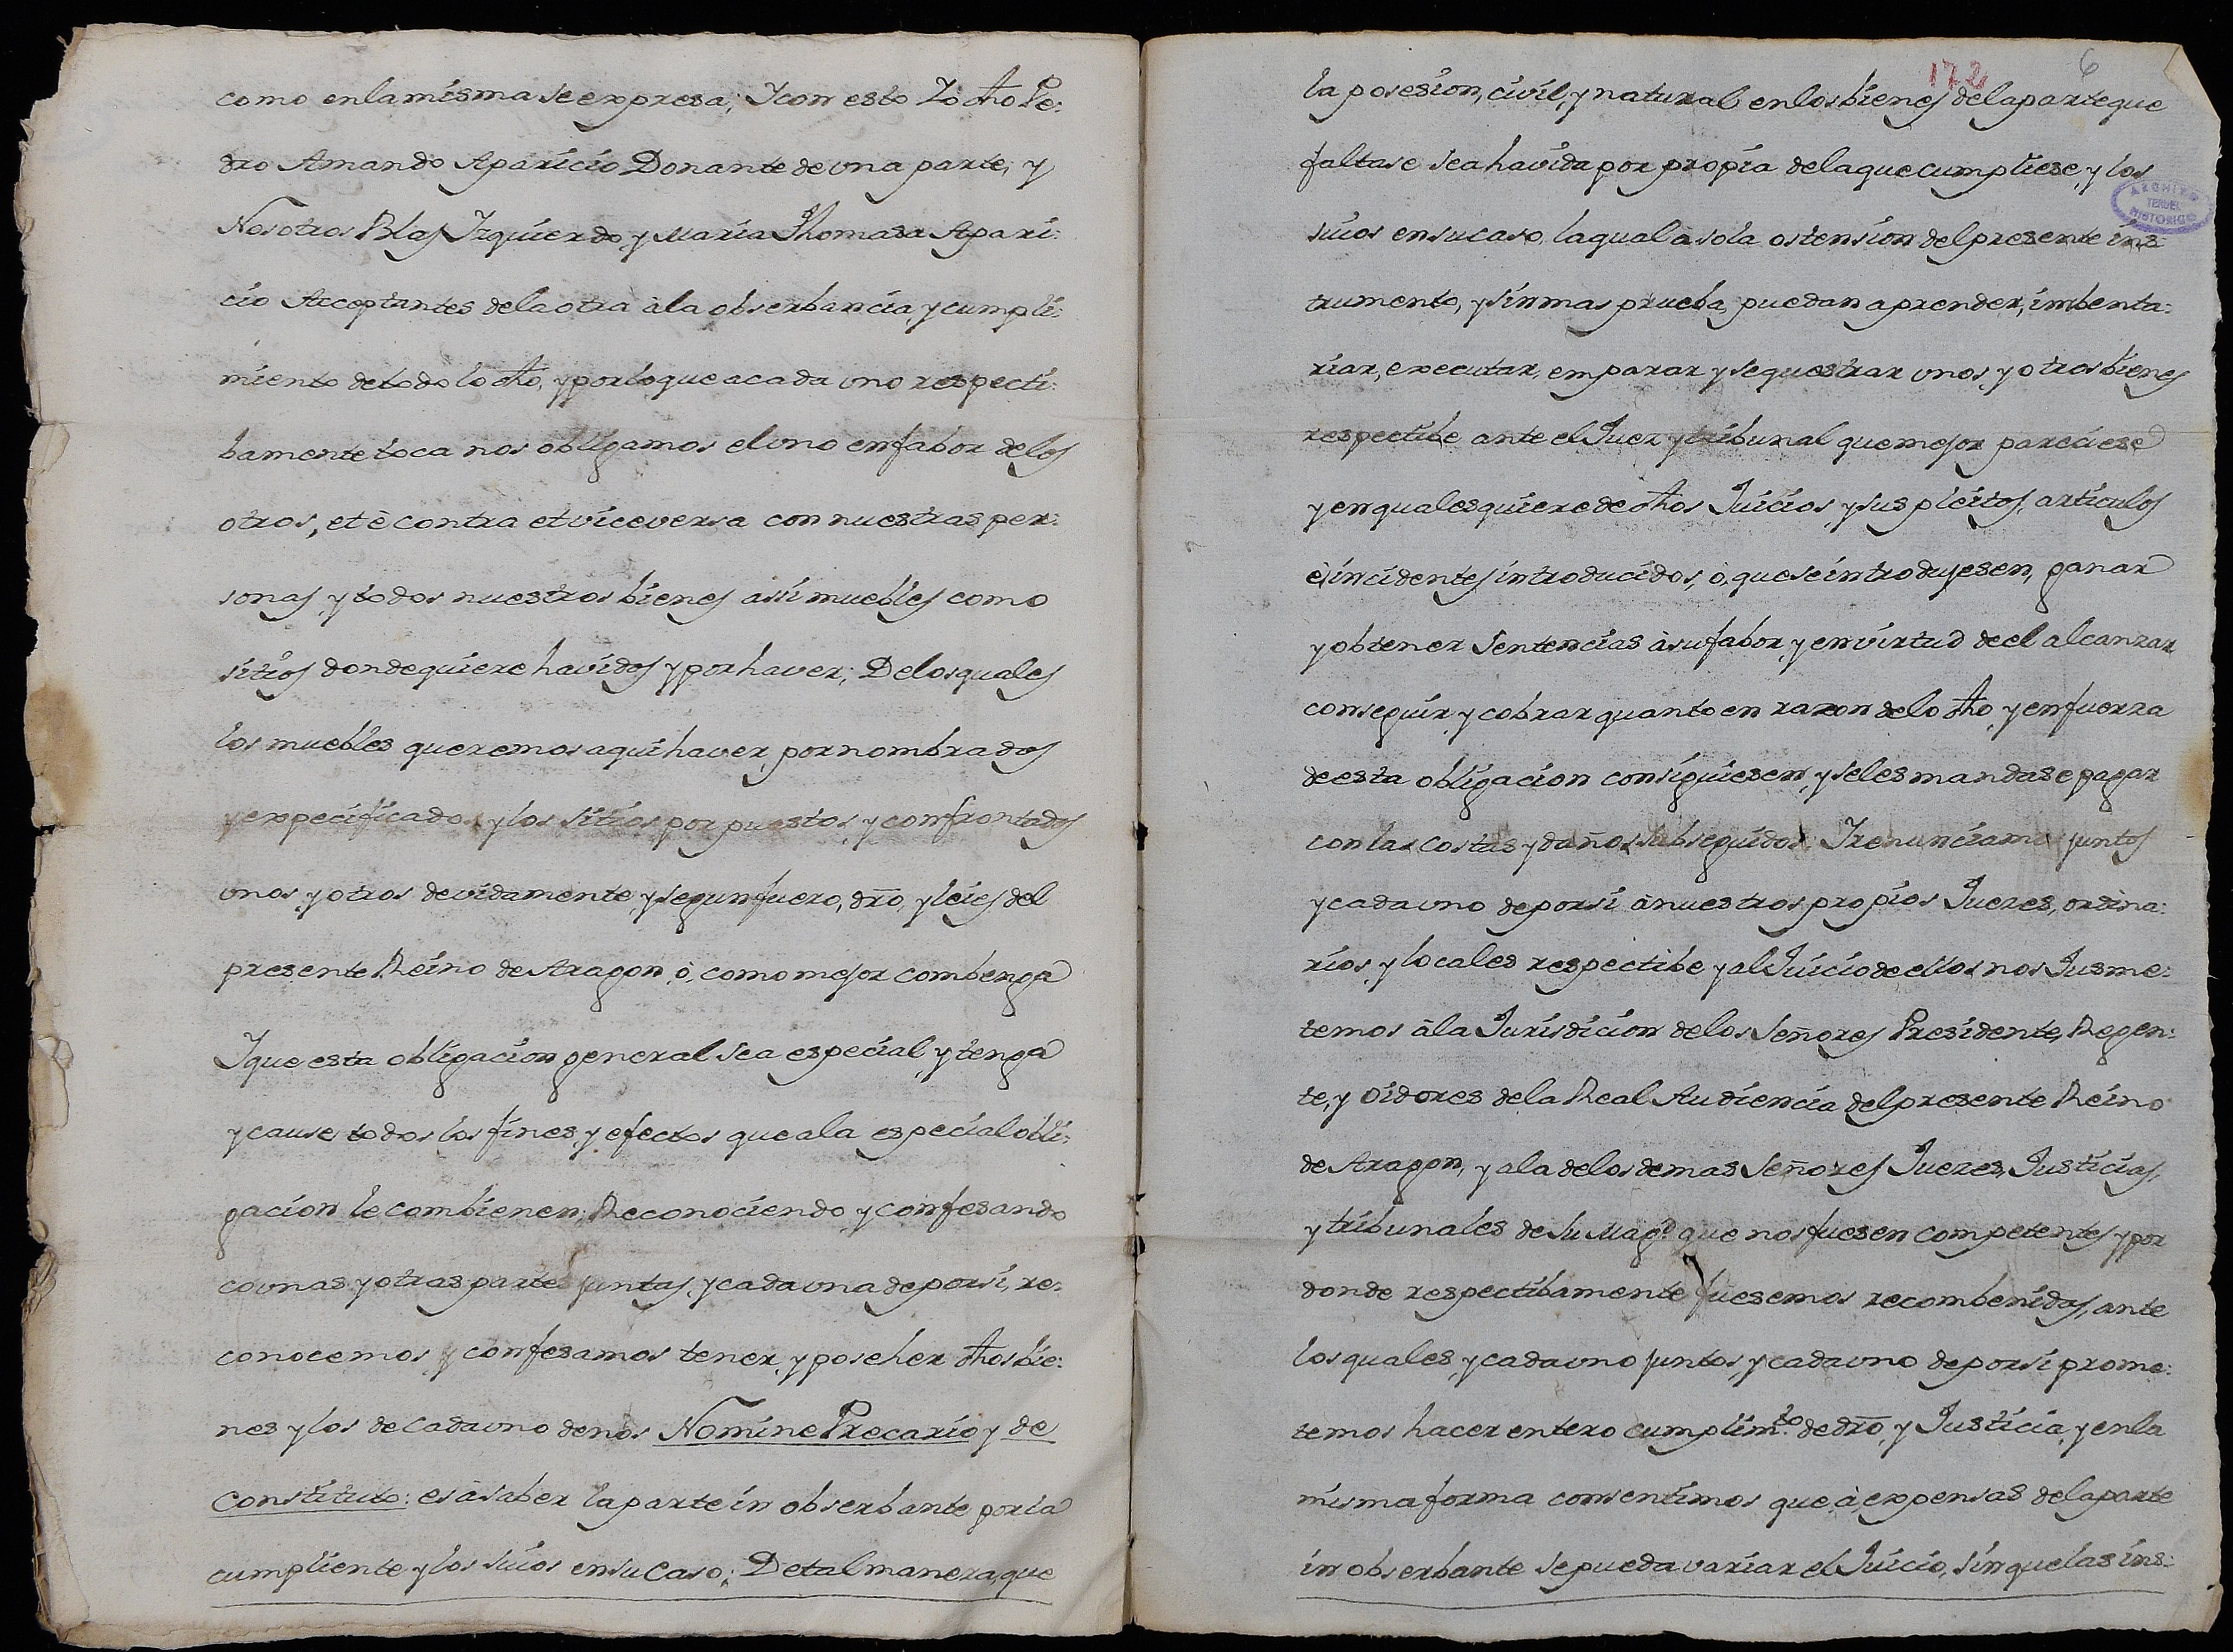 como en la misma se expresa; Y con esto Yò dho Pe:
dro Amando Aparicio Donante de una parte, y
Nosotros Blas Izquierdo, y Maria Thomasa Apari:
cio Acceptantes de la otra à la obserbancia, y cumpli:
miento de todo lo dho, y por lo que a cada uno respecti:
bamente toca nos obligamos el uno en fabor de los
otros, et è contra et viceversa con nuestras per:
sonas, y todos nuestros bienes assi muebles como
sitios donde quiere havidos y por haver; De los quales
los muebles queremos aqui haver, por nombrados
y expecificados y los sitios por puestos, y confrontados
unos, y otros devidamente, y segun fuero, dro, y leies del
presente Reino de Aragon, ò, como mejor combenga
Y que esta obligacion general sea especial, y tenga
y cause todos los fines, y efectos que a la especial obli:
gacion le combienen; Reconociendo, y confesando
co unas, y otras partes juntas, y cada una de por si, re:
conocemos, y confesamos tener, y poseher dhos bie:
nes y los de cada uno de nos Nomine Precario y de
Constituto: es à saber la parte in obserbante por la
cumpliente y los suios en su Caso; De tal manera, que
172 6
la posesion, civil, y natural en los bienes de la parte que
faltase sea havida por propia de la que cumpliese, y los
suios en su caso, la qual à sola ostension del presente ins:
trumento, y sin mas prueba, puedan aprender, imbenta:
riar, executar, emparar y sequestrar unos, y otros bienes
respectibe ante el Juez y tribunal que mejor pareciese
y en qualesquiere de dhos Juicios, y sus pleitos, articulos
è incidentes introducidos, ò, que se introdujesen, ganar
y obtener Sentencias à su fabor, y en virtud de el alcanzar
conseguir, y cobrar quanto en razon de lo dho, y en fuerza
de esta obligacion consiguiesen, y se les mandase pagar
con las costas y daños subseguidos; Y renunciamos juntos
y cada uno de por si à nuestros propios Juezes, ordina:
rios, y locales respectibe y al Juicio de ellos nos Jusme:
temos à la Jurisdicion de los Señores Presidente, Regen:
te, y oidores de la Real Audiencia del presente Reino
de Aragon, y a la de los demas Señores Juezes, Justicias,
y tribunales de su Magd. que nos fuesen competentes y por
donde respectibamente fuesemos recombenidos, ante
los quales, y cada uno juntos, y cada uno de por si prome:
temos hacer entero cumplimto. de dro, y Justicia, y en la
misma forma consentimos que à expensas de la parte
in obserbante se pueda variar el Juicio, sin que las ins:
ARCHIVO
TERUEL
HISTORICO